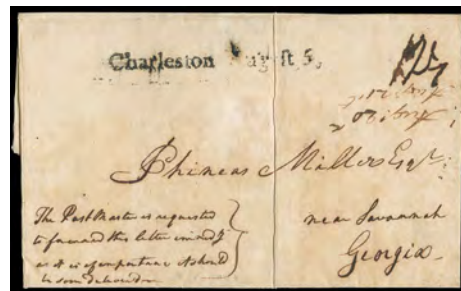 Charleston August 5,
Phineas Miller Esqr.
near Savannah
Georgia
The Post Master is requested
to forward this letter immedy
as it is of importance & should
be soon delivered